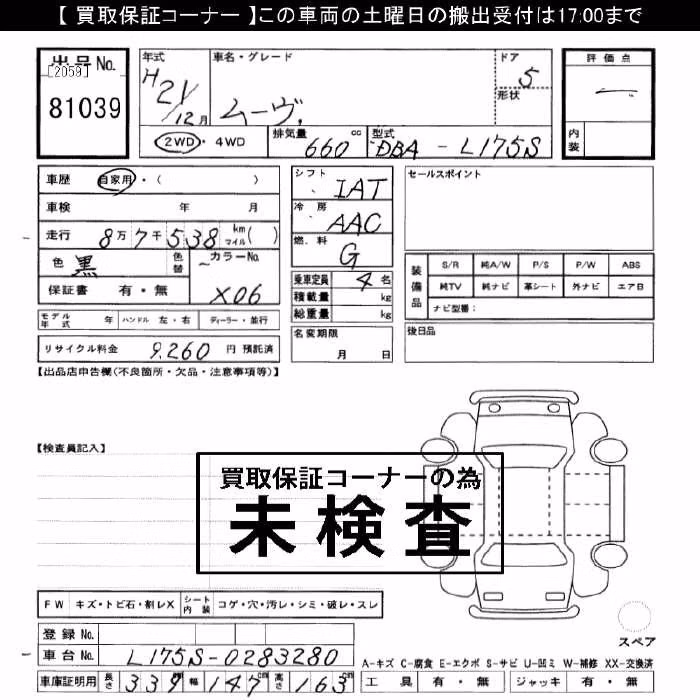 【 買取保証コーナー 】この車両の土曜日の搬出受付は17:00まで
出品No.
[2059]
81039
年式
H21/12月
車名・グレード
ムーヴ
ドア
5
形状
2WD・4WD
排気量
660 cc
型式
DBA - L175S
評価点
内装
車歴 自家用・( )
車検 年 月
走行 8万7千538 km マイル( )
色 黒 色替 カラーNo. X06
保証書 有・無
モデル年式 年 ハンドル 左・右 ディーラー・並行
リサイクル料金 9,260 円 預託済
シフト IAT
冷房 AAC
燃料 G
乗車定員 4 名
積載量 kg
総重量 kg
名変期限
月 日
セールスポイント
装備品
S/R 純A/W P/S P/W ABS
純TV 純ナビ 革シート 外ナビ エアB
ナビ型番:
後日品
【出品店申告欄(不良箇所・欠品・注意事項等)】
【検査員記入】
買取保証コーナーの為
未検査
FW キズ・トビ石・割レX シート内装 コゲ・穴・汚レ・シミ・破レ・スレ
登録No.
車台No. L175S-0283280
車庫証明用 長さ 339 cm 幅 147 cm 高さ 163 cm
スペア
A-キズ C-腐食 E-エクボ S-サビ U-凹ミ W-補修 XX-交換済
工具 有・無 ジャッキ 有・無